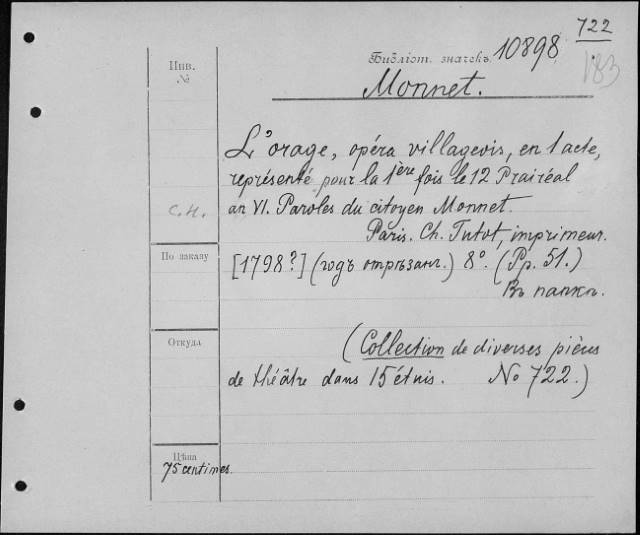 722
Инв.
№
Библіот. значекъ 10898
183
Monnet.
L'orage, opéra villageois, en 1 acte,
représenté pour la 1ère fois le 12 Prairéal
С.Н.
an VI. Paroles du citoyen Monnet.
Paris. Ch. Tutot, imprimeur.
По заказу
[1798?] (годъ отрѣзанъ.) 8°. (Pp. 51.)
Въ папкѣ.
Откуда
(Collection de diverses pièces
de théâtre dans 15 étuis. No 722.)
Цѣна
75 centimes.